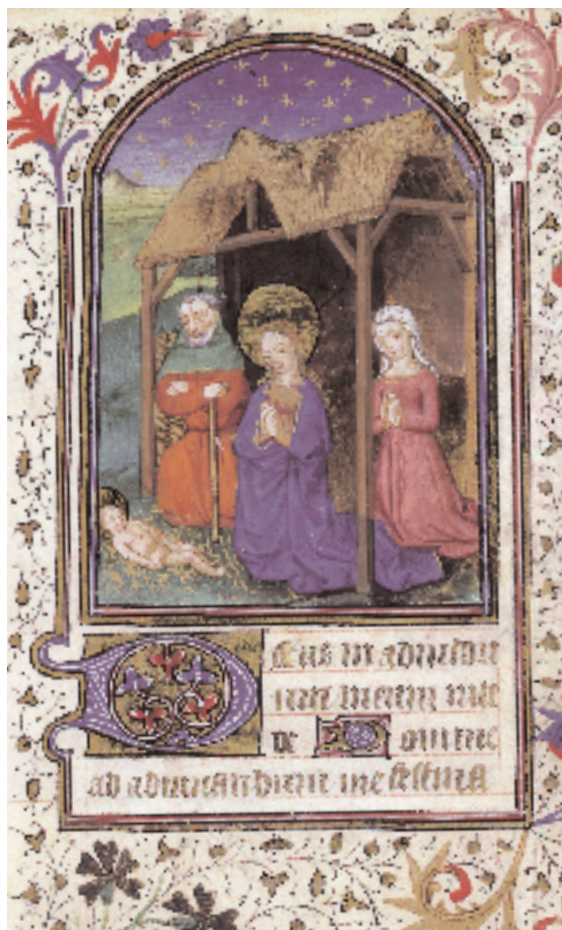 Deus in adiutori
um meum inte
de Domine
ad adiuuandum me festina